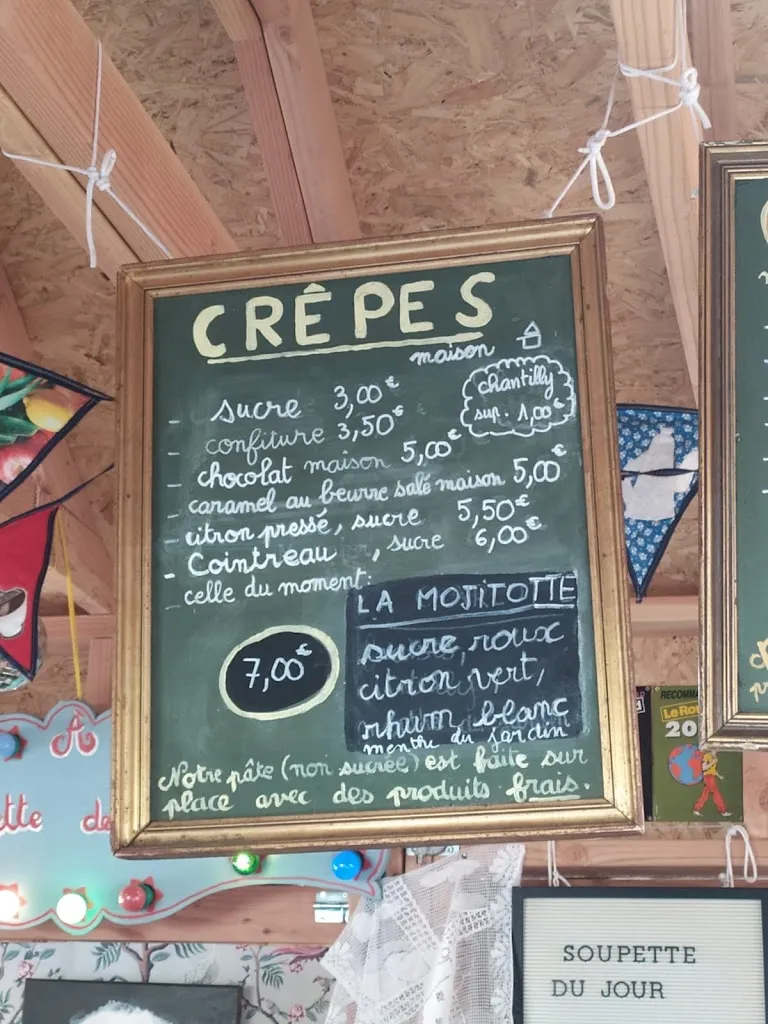 CRÊPES
maison
chantilly
sup. 1,00€
- sucre 3,00€
- confiture 3,50€
- chocolat maison 5,00€
- caramel au beurre salé maison 5,00€
- citron pressé, sucre 5,50€
- Cointreau , sucre 6,00€
- celle du moment:
LA MOJITOTTE
7,00€
sucre roux
citron vert,
rhum blanc
menthe du jardin
Notre pâte (non sucrée) est faite sur
place avec des produits frais.
A
ette de
RECOMMA
Le Rou
20
SOUPETTE
DU JOUR